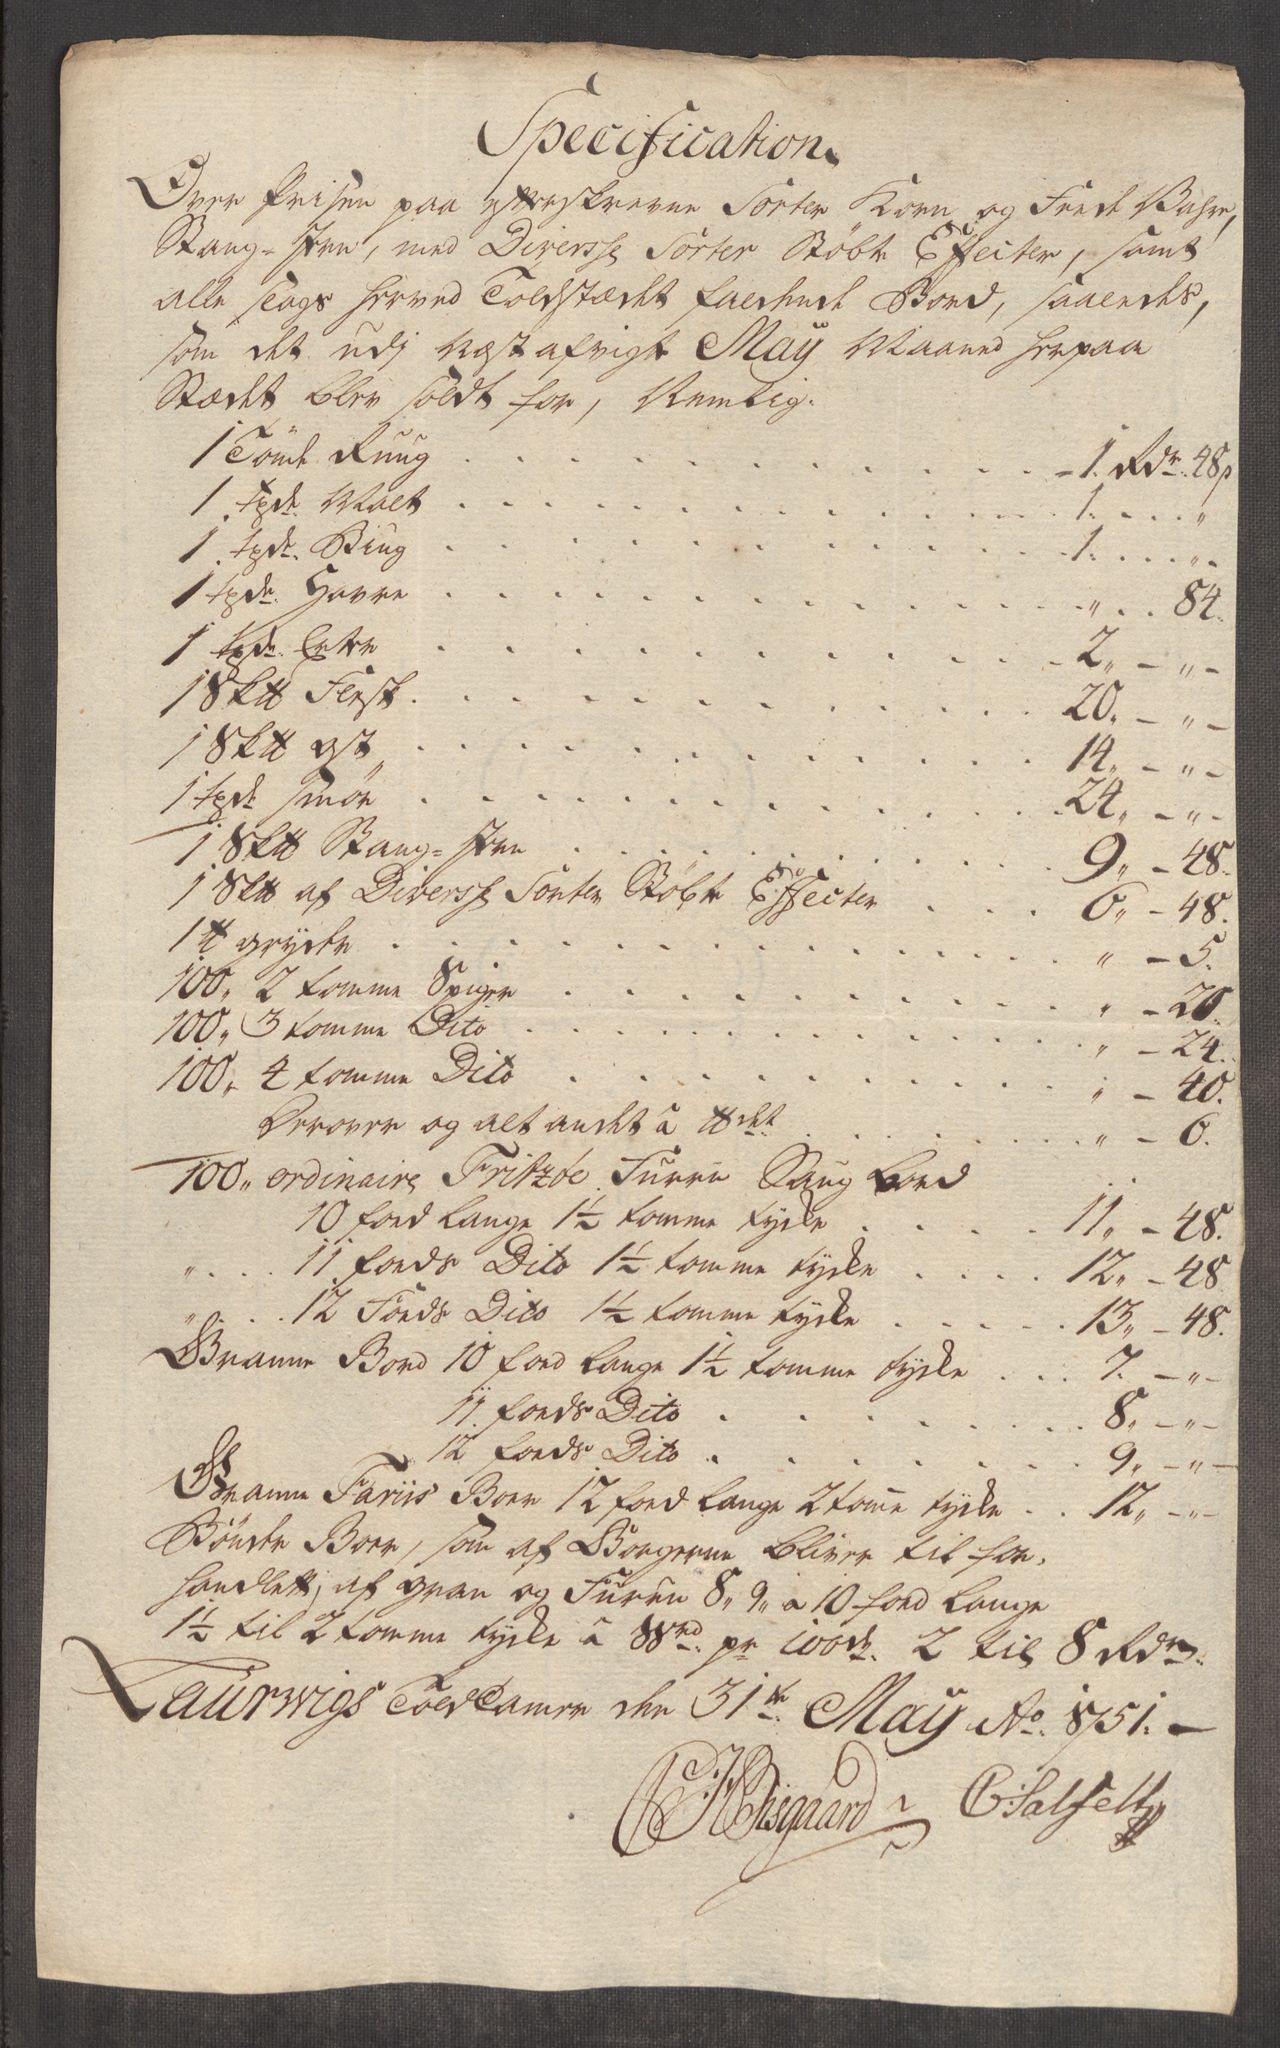 Specification
Over Prisen paa efterskrevne Sorter Korn og Feede Vahre,
Stang-Jern, med Diversse Sorter Støbte Effecter, samt
alle slags herved Toldstædet faldende Bord, saaledes,
som det udj næst afvigte May Maaned herpaa
Stædet blev soldt for, Nemlig.
1 Tönde Ruug . . . 1. Rdr. 48 s
1. tønde. Malt . . . 1. . . "
1. tønde. Biug . . . 1. . . "
1 tønde. Havre . . . " . . 84.
1 tønde. Erter . . . 2„ - „ -
1 Sk℔ Flesk . . . 20. - „ -
1 Sk℔ Ost . . . 14„ - „ -
1 tønde Smør . . . 24„ - „ -
1 Sk℔ Stang-Jern . . . 9„ - 48.
1 Sk℔ af Diversse Sorter Støbte Effecter . . . 6„ - 48.
1 ℔ gryder . . . „ - 5.
100„ 2 tomme Spiger . . . „ - 20.
100„ 3 tomme Dito . . . „ - 24.
100„ 4 tomme Dito . . . „ - 40.
og alt andet â ℔det . . . „ - 6.
100„ ordinaire Fritzøe Furru Saug bord
10 foed lange 1½ tomme tyche . . . 11„ - 48.
„ . . . 11 foeds Dito 1½ tomme tyche . . . 12„ - 48
„ . . . 12 Foeds Dito 1½ tomme tyche . . . 13„ - 48.
Granne Bord 10 foed lange 1½ tomme tyche . . . 7. - „ -
11 foeds Dito . . . 8„ - „ -
12 foeds Dito . . . 9„ - „ -
Granne Fariis Boer 12 foed lange 2 tome tyche . . 12„ - „ -
Bönder Boer, som af Borgerne bliver til for-
handlet, af gran og Furru 8„ 9„ a 10 foed lange
1½ til 2 tomme tyche â pr 100de. 2 til 8 Rdr.
Laurwigs ToldCamer den 31te May Ao. 1751. -
Risgaard C: Salfelt